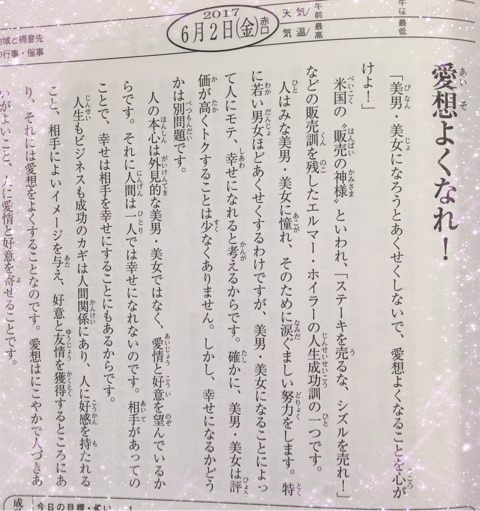 域と得意先
行事・催事
2017
6月2日(金)赤口
天気 午前
気温 最高
午後 最低
愛想よくなれ！
「美男・美女になろうとあくせくしないで、愛想よくなることを心が
けよ！」
米国の〝販売の神様〟といわれ、「ステーキを売るな、シズルを売れ！」
などの販売訓を残したエルマー・ホイラーの人生成功訓の一つです。
人はみな美男・美女に憧れ、そのために涙ぐましい努力をします。特
に若い男女ほどあくせくするわけですが、美男・美女になることによっ
て人にモテ、幸せになれると考えるからです。確かに、美男・美女は評
価が高くトクすることは少なくありません。しかし、幸せになるかどう
かは別問題です。
人の本心は外見的な美男・美女ではなく、愛情と好意を望んでいるか
らです。それに人間は一人では幸せになれないのです。相手があっての
ことで、幸せは相手を幸せにすることにもあるからです。
人生もビジネスも成功のカギは人間関係にあり、人に好感を持たれる
こと、相手によいイメージを与え、好意と友情を獲得するところにあ
り、それには愛想をよくすることなのです。愛想はにこやかで人づきあ
いがよいこと、人に愛情と好意を寄せることです。
成
今日の目標・